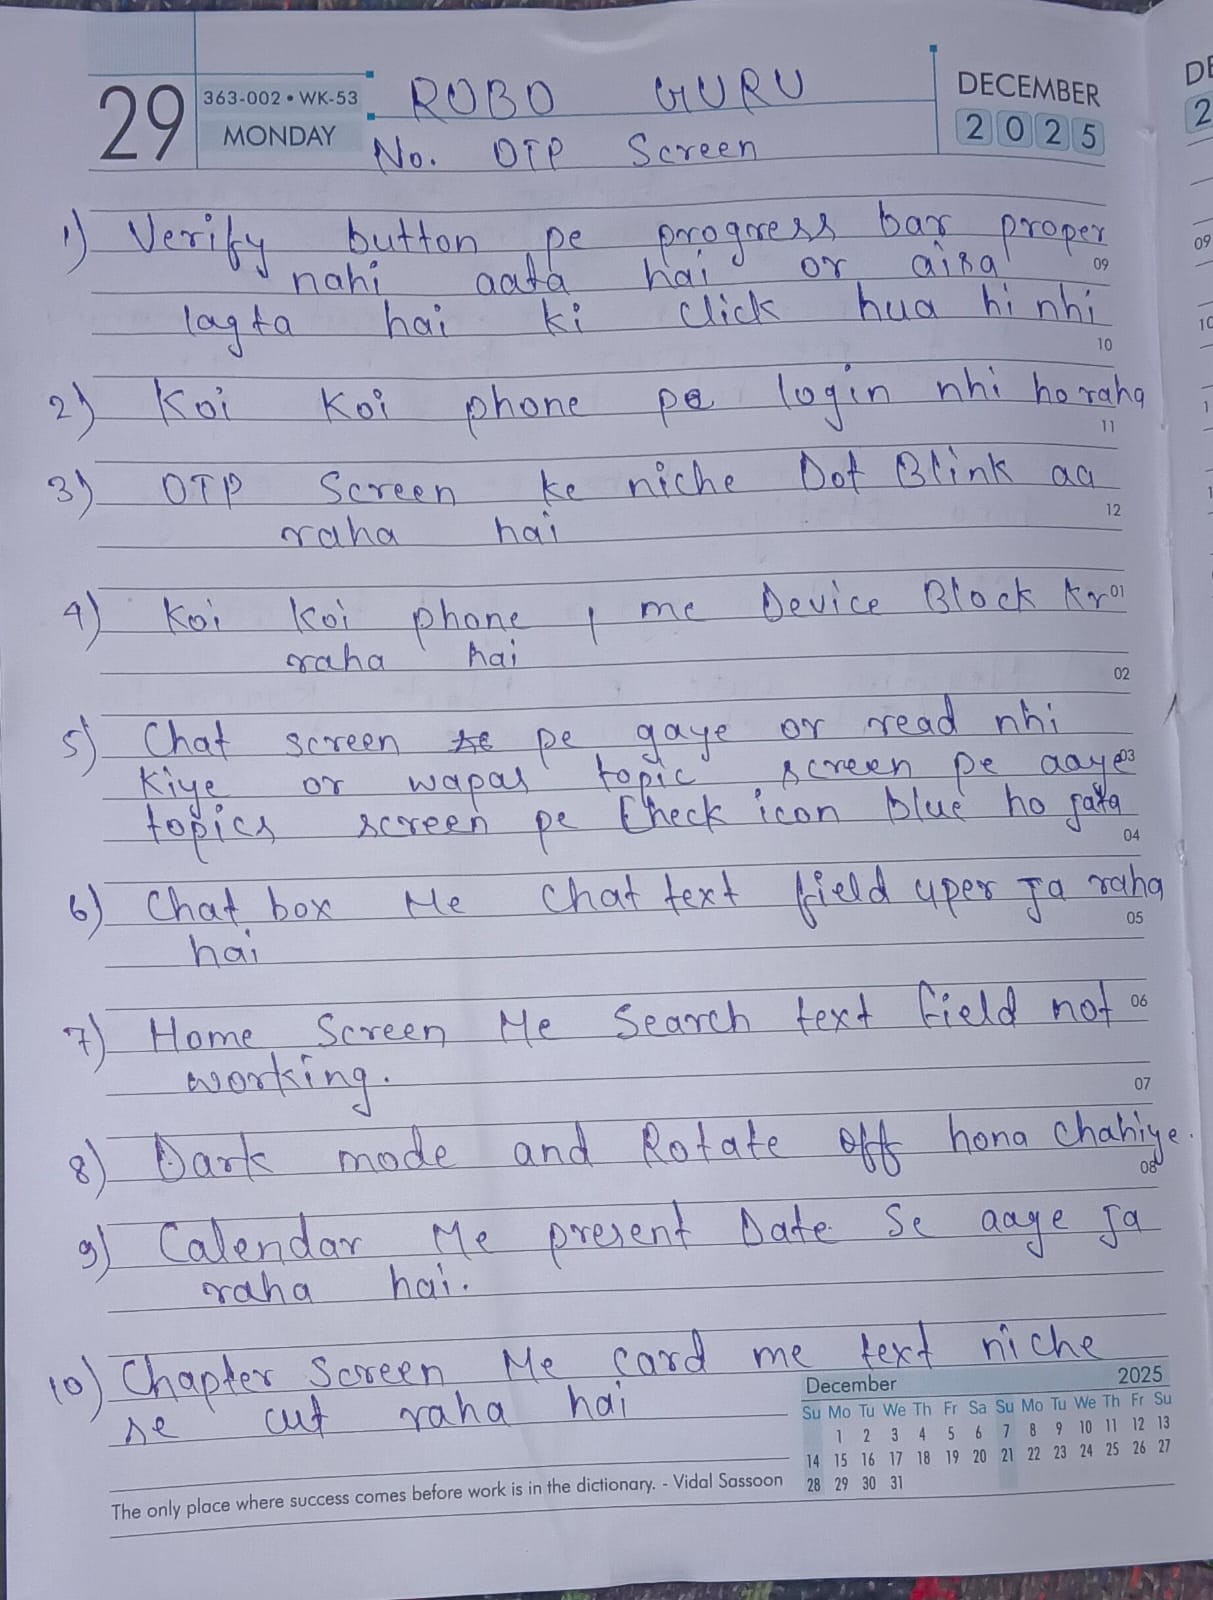 29
363-002 • WK-53
MONDAY
ROBO GURU
No. OTP Screen
DECEMBER
2025
1) Verify button pe progress bar proper
nahi aata hai or aisa
09
lagta hai ki click hua hi nhi
10
2) Koi Koi phone pe login nhi ho raha
11
3) OTP Screen ke niche Dot Blink aa
12
raha hai
4) Koi Koi phone me Device Block kr
01
raha hai
02
5) Chat screen pe gaye or read nhi
Kiye or wapas topic screen pe aaye
03
topics screen pe Check icon blue ho jata
04
6) Chat box Me Chat text field uper ja raha
05
hai
7) Home Screen Me Search text field not
06
working.
07
8) Dark mode and Rotate off hona chahiye.
08
9) Calendar Me present Date se aage ja
raha hai.
10) Chapter Screen Me card me text niche
se cut raha hai
December 2025
Su Mo Tu We Th Fr Sa Su Mo Tu We Th Fr Su
1 2 3 4 5 6 7 8 9 10 11 12 13
14 15 16 17 18 19 20 21 22 23 24 25 26 27
28 29 30 31
The only place where success comes before work is in the dictionary. - Vidal Sassoon